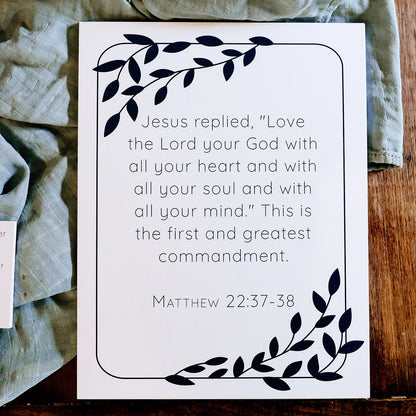 Jesus replied, "Love
the Lord your God with
all your heart and with
all your soul and with
all your mind." This is
the first and greatest
commandment.
Matthew 22:37-38